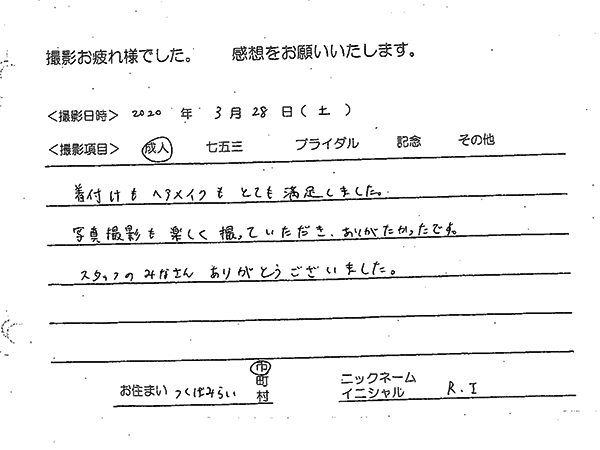 撮影お疲れ様でした。　感想をお願いいたします。
＜撮影日時＞ 2020 年 3月 28 日（土）
＜撮影項目＞ 成人　七五三　ブライダル　記念　その他
着付けも ヘアメイクも とても 満足しました。
写真撮影も 楽しく 撮っていただき、ありがたかったです。
スタッフの みなさん ありがとうございました。
お住まい つくばみらい 市 町 村
ニックネーム イニシャル R.I